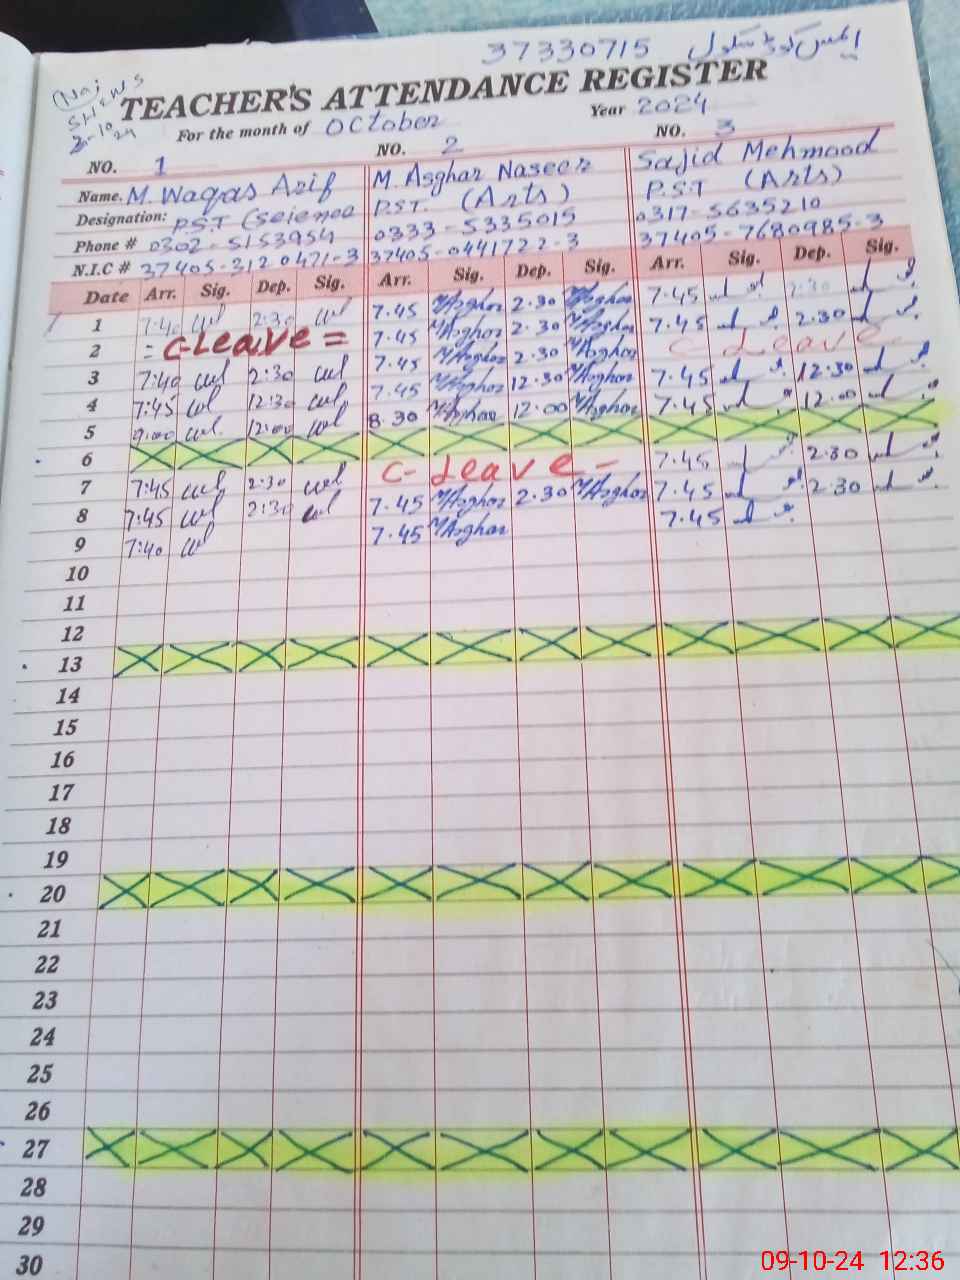 37330715 ایمس کوڈ سکول
TEACHER'S ATTENDANCE REGISTER
For the month of October Year 2024
NO. 1 NO. 2 NO. 3
Name. M. Waqas Arif M. Asghar Naseer Sajid Mehmood
Designation: P.S.T (Science P.S.T. (Arts) P.S.T (Arts)
Phone # 0302-5153954 0333-5335015 0317-5635210
N.I.C # 37405-3120471-3 37405-0441722-3 37405-7680985-3
Date Arr. Sig. Dep. Sig. Arr. Sig. Dep. Sig. Arr. Sig. Dep. Sig.
1 7:40 2:30 7.45 MAsghar 2.30 MAsghar 7.45 2:30
2 = C-Leave = 7.45 MAsghar 2.30 MAsghar 7.45 2.30
3 7:40 2:30 7.45 MAsghar 2.30 MAsghar C-Leave-
4 7:45 12:30 7.45 MAsghar 12.30 MAsghar 7.45 12.30
5 9:00 12:00 8.30 MAsghar 12.00 MAsghar 7.45 12.00
6
7 7:45 2:30 C-Leave- 7.45 2.30
8 7:45 2:30 7.45 MAsghar 2.30 MAsghar 7.45 2.30
9 7:40 7.45 MAsghar 7.45
10
11
12
13
14
15
16
17
18
19
20
21
22
23
24
25
26
27
28
29
30
09-10-24 12:36